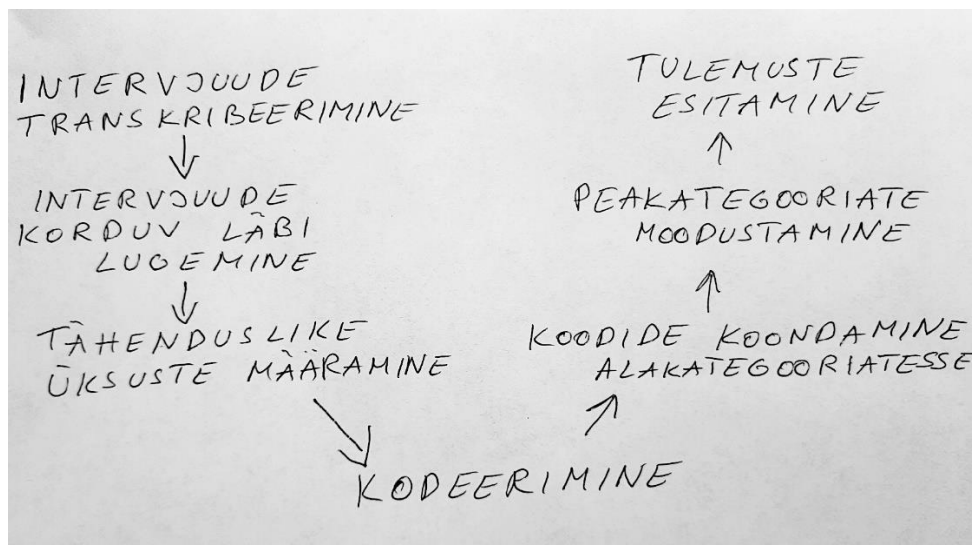 INTERVJUUDE
TRANSKRIBEERIMINE
INTERVJUUDE
KORDUV LÄBI
LUGEMINE
TÄHENDUSLIKE
ÜKSUSTE MÄÄRAMINE
KODEERIMINE
KOODIDE KOONDAMINE
ALAKATEGOORIATESSE
PEAKATEGOORIATE
MOODUSTAMINE
TULEMUSTE
ESITAMINE